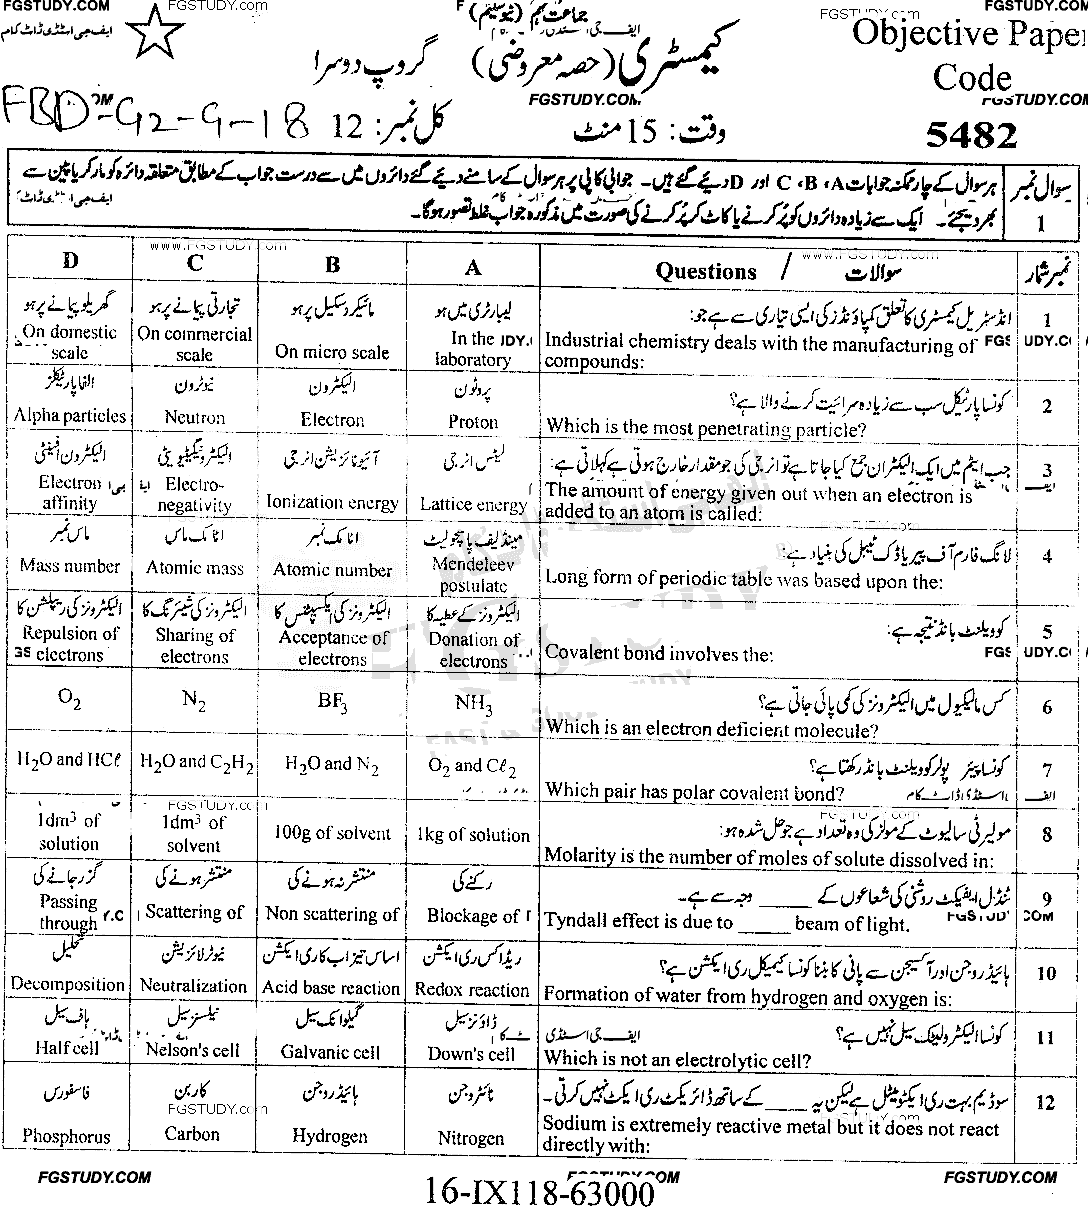 FGSTUDY.COM
ایف جی اسٹڈی ڈاٹ کام
جماعت نہم
FGSTUDY.com
Objective Paper
Code
5482
کیمسٹری (حصہ معروضی) گروپ دوسرا
FGSTUDY.COM
FGSTUDY.COM
FBD-G2-9-18
وقت: 15 منٹ کل نمبر: 12
سوال نمبر 1
ہر سوال کے چار ممکنہ جوابات A، B، C اور D دیئے گئے ہیں۔ جوابی کاپی پر ہر سوال کے سامنے دیئے گئے دائروں میں سے درست جواب کے مطابق متعلقہ دائرہ کو مارکر یا پین سے
بھر دیجئے۔ ایک سے زیادہ دائروں کو پُر کرنے یا کاٹ کر پُر کرنے کی صورت میں مذکورہ جواب غلط تصور ہوگا۔
www.FGSTUDY.com
www.FGSTUDY.com
D C B A Questions / سوالات نمبر شمار
1 انڈسٹریل کیمسٹری کا تعلق کمپاؤنڈز کی ایسی تیاری سے ہے جو:
Industrial chemistry deals with the manufacturing of
compounds:
لیبارٹری میں ہو
In the
laboratory
مائیکرو سکیل پر ہو
On micro scale
تجارتی پیمانے پر ہو
On commercial
scale
گھریلو پیمانے پر ہو
On domestic
scale
2 کونسا پارٹیکل سب سے زیادہ سرائیت کرنے والا ہے؟
Which is the most penetrating particle?
پروٹون
Proton
الیکٹرون
Electron
نیوٹرون
Neutron
الفا پارٹیکلز
Alpha particles
3 جب ایٹم میں ایک الیکٹران جمع کیا جاتا ہے تو انرجی کی جو مقدار خارج ہوتی ہے کہلاتی ہے:
The amount of energy given out when an electron is
added to an atom is called:
لیٹس انرجی
Lattice energy
آئیونائزیشن انرجی
Ionization energy
الیکٹرونیگیٹیویٹی
Electro-
negativity
الیکٹرون افینٹی
Electron
affinity
4 لانگ فارم آف پیریاڈک ٹیبل کی بنیاد ہے:
Long form of periodic table was based upon the:
مینڈلیف پاسچولیٹ
Mendeleev
postulate
اٹامک نمبر
Atomic number
اٹامک ماس
Atomic mass
ماس نمبر
Mass number
5 کوویلنٹ بانڈ نتیجہ ہے:
Covalent bond involves the:
الیکٹرونز کے عطیہ کا
Donation of
electrons
الیکٹرونز کی ایکسیپٹنس کا
Acceptance of
electrons
الیکٹرونز کی شیئرنگ کا
Sharing of
electrons
الیکٹرونز کی ریپلشن کا
Repulsion of
electrons
6 کس مالیکیول میں الیکٹرونز کی کمی پائی جاتی ہے؟
Which is an electron deficient molecule?
NH₃
BF₃
N₂
O₂
7 کونسا پیئر پولر کوویلنٹ بانڈ رکھتا ہے؟
Which pair has polar covalent bond?
O₂ and Cℓ₂
H₂O and N₂
H₂O and C₂H₂
H₂O and HCℓ
8 مولیرٹی سالیوٹ کے مولز کی وہ تعداد ہے جو حل شدہ ہو:
Molarity is the number of moles of solute dissolved in:
1kg of solution
100g of solvent
1dm³ of
solvent
1dm³ of
solution
9 ٹنڈل ایفیکٹ روشنی کی شعاعوں کے _____ وجہ سے ہے۔
Tyndall effect is due to _____ beam of light.
رکنے کی
Blockage of
منتشر نہ ہونے کی
Non scattering of
منتشر ہونے کی
Scattering of
گزر جانے کی
Passing
through
10 ہائیڈروجن اور آکسیجن سے پانی کا بننا کونسا کیمیکل ری ایکشن ہے؟
Formation of water from hydrogen and oxygen is:
ریڈاکس ری ایکشن
Redox reaction
اساس تیزاب کا ری ایکشن
Acid base reaction
نیوٹرلائزیشن
Neutralization
تحلیل
Decomposition
11 کونسا الیکٹرولیٹک سیل نہیں ہے؟
Which is not an electrolytic cell?
ڈاؤنز سیل
Down's cell
گیلوانک سیل
Galvanic cell
نیلسنز سیل
Nelson's cell
ہاف سیل
Half cell
12 سوڈیم بہت ری ایکٹو میٹل ہے لیکن یہ _____ کے ساتھ ڈائریکٹ ری ایکٹ نہیں کرتی۔
Sodium is extremely reactive metal but it does not react
directly with:
نائٹروجن
Nitrogen
ہائیڈروجن
Hydrogen
کاربن
Carbon
فاسفورس
Phosphorus
FGSTUDY.COM
FGSTUDY.COM
16-IX118-63000